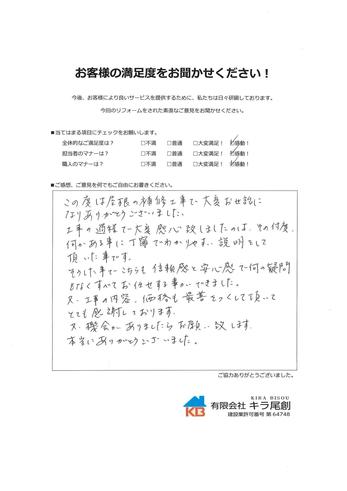 お客様の満足度をお聞かせください！
今後、お客様により良いサービスを提供するために、私たちは日々研鑽しております。
今回のリフォームをされた素直なご意見をお聞かせください。
■当てはまる項目にチェックをお願いします。
全体的なご満足度は？ □不満 □普通 □大変満足！ ☑感動！
担当者のマナーは？ □不満 □普通 □大変満足！ ☑感動！
職人のマナーは？ □不満 □普通 □大変満足！ ☑感動！
■ご感想、ご意見を何でもご自由にお書きください。
この度は屋根の補修工事で大変お世話に
なりありがとうございました。
工事の過程で大変感心致しましたのは、その付度、
何かある事に丁寧でわかりやすい説明をして
頂いた事です。
そうした事でこちらも信頼感と安心感で何の疑問
もなくすべてお任せする事ができました。
又、工事の内容、価格も最善をつくして頂いて
とても感謝しております。
又、機会がありましたらお願い致します。
本当にありがとうございました。
ご協力ありがとうございました。
KIRA BISOU
KB 有限会社 キラ尾創
建設業許可番号 第64748